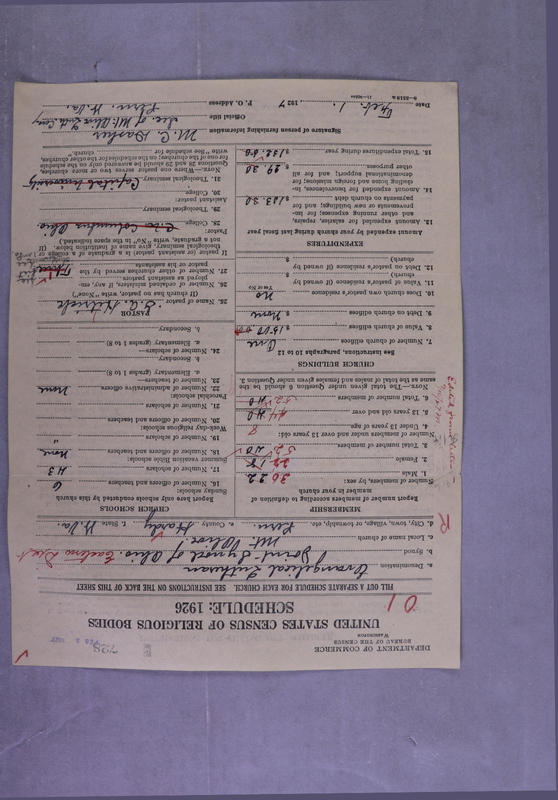 DEPARTMENT OF COMMERCE
BUREAU OF THE CENSUS
WASHINGTON
UNITED STATES CENSUS OF RELIGIOUS BODIES
SCHEDULE: 1926
01
FILL OUT A SEPARATE SCHEDULE FOR EACH CHURCH. SEE INSTRUCTIONS ON THE BACK OF THIS SHEET
a. Denomination Evangelical Lutheran
b. Synod Joint Synod of Ohio. Eastern Dist
c. Local name of church Mt. Olive
d. City, town, village, or township, etc. e. County Hardy f. State W. Va.
R
MEMBERSHIP
Report number of members according to definition of member in your church
Number of members, by sex:
1. Male 30 22
2. Female 18
3. Total number of members 52 40
Number of members under and over 13 years old:
4. Under 13 years of age 8
5. 13 years old and over 44 40
6. Total number of members 52 40
NOTE.—The total given under Question 6 should be the same as the total of males and females given under Question 3.
CHURCH BUILDINGS
See Instruction, paragraphs 10 to 12
7. Number of church edifices One
8. Value of church edifices $ 1500
9. Debt on church edifices $ None
10. Does church own pastor's residence No
Yes or No
11. Value of pastor's residence (if owned by church) $
12. Debt on pastor's residence (if owned by church) $
EXPENDITURES
Amount expended by your church during last fiscal year
13. Amount expended for salaries, repairs, and other running expenses; for improvements or new buildings; and for payments on church debt $
14. Amount expended for benevolence, including home and foreign missions; for denominational support; and for all other purposes
15. Total expenditures during year
CHURCH SCHOOLS
Report here only schools conducted by this church
Sunday schools:
16. Number of officers and teachers 6
17. Number of scholars 43
Summer vacation Bible schools:
18. Number of officers and teachers None
19. Number of scholars "
Week-day religious schools:
20. Number of officers and teachers
21. Number of scholars
Parochial schools:
22. Number of administrative officers None
23. Number of teachers—
a. Elementary (grades 1 to 8)
b. Secondary
24. Number of scholars—
a. Elementary (grades 1 to 8)
b. Secondary
PASTOR
25. Name of pastor
(If church has no pastor, write "None")
26. Number of ordained ministers, if any, employed as assistant pastors
27. Number of other churches served by the pastor or his assistant
If pastor (or assistant pastor) is a graduate of a college or theological seminary, give name of institution below. (If not a graduate, write "No" in the space indicated.)
Pastor:
28. College Columbus Ohio
29. Theological seminary
Assistant pastor:
30. College
31. Theological seminary Capital University
NOTE.—Where one pastor serves two or more churches, Questions 28 and 29 should be answered only on the schedule for one of the churches; on the schedules for the other churches, write "See schedule for church."
Signature of person furnishing information
Official title
Date Feb. 1, 1927 P. O. Address